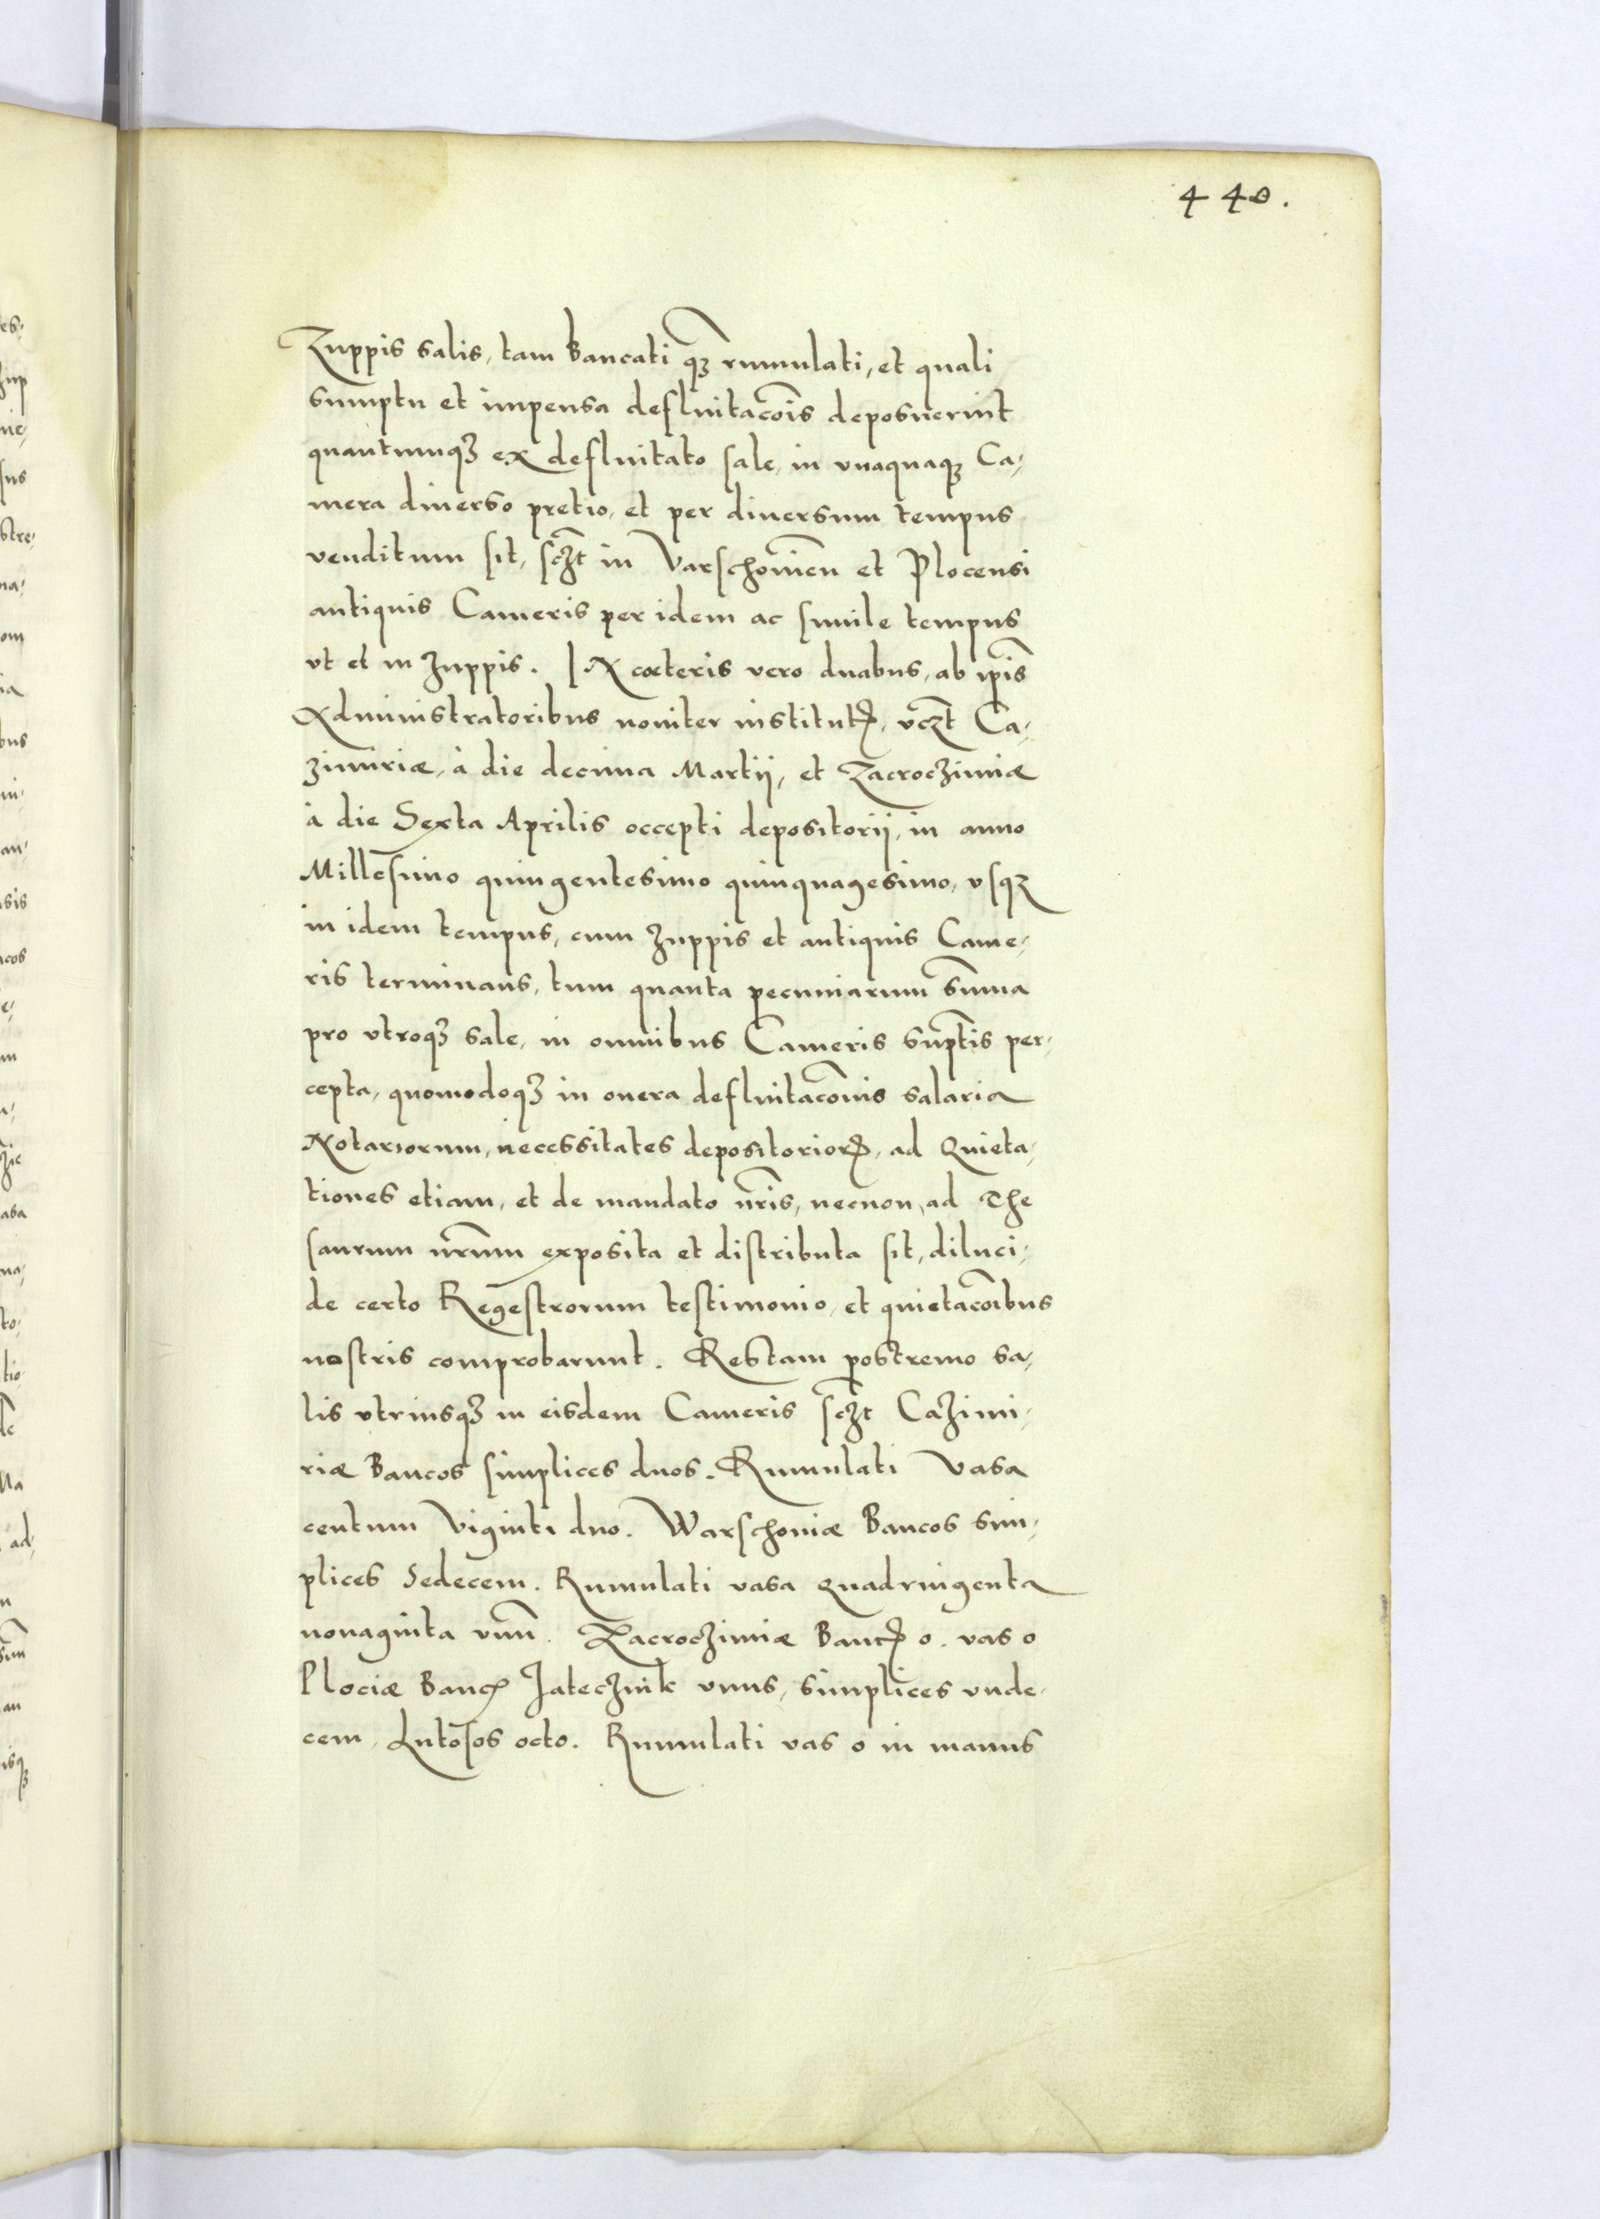 440.
Zuppis salis, tam Bancati qꝫ rumulati, et quali
sumptu et impensa defluitac̃ois deposuerint
quantumqꝫ ex defluitato sale, in vnaquaqꝫ Ca,
mera diuerso pretio, et per diuersum tempus
venditum sit, scꝫt in Varschouien̄ et Plocensi
antiquis Cameris per idem ac simile tempus
vt et in Zuppis. | A cœteris vero duabus, ab ip̃is
Administratoribus nouiter institutꝭ, vcꝫt Ca,
zimiriæ, à die decima Martij, et Zacrocziniæ
à die Sexta Aprilis occepti depositorii, in anno
Millesimo quingentesimo quinquagesimo, vsqꝫ
in idem tempus, cum Zuppis et antiquis Came,
ris terminans, tum quanta pecuniarum sum̃a
pro vtroqꝫ sale, in omnibus Cameris sup̃tis per,
cepta, quomodoqꝫ in onera defluitac̃onis salaria
Notariorum, necessitates depositoriorꝭ, ad Quieta,
tiones etiam, et de mandato nr̃is, necnon, ad The
saurum nr̃um exposita et distributa sit, diluci,
de certo Regestrorum testimonio, et quietac̃oibus
nostris comprobarunt. Restam postremo sa,
lis vtriusqꝫ in eisdem Cameris scꝫt Cazimi,
riæ Bancos simplices duos. Rumulati Vasa
centum Viginti duo. Warschouiæ Bancos sim,
plices Sedecem. Rumulati vasa quadringenta
nonaginta vnū. Zacrocziniæ Bancꝭ 0. vas 0
Plociæ Bancꝭ Jatecznik vnus, simplices vnde,
cem, Lutosos octo. Rumulati vas 0 in manus